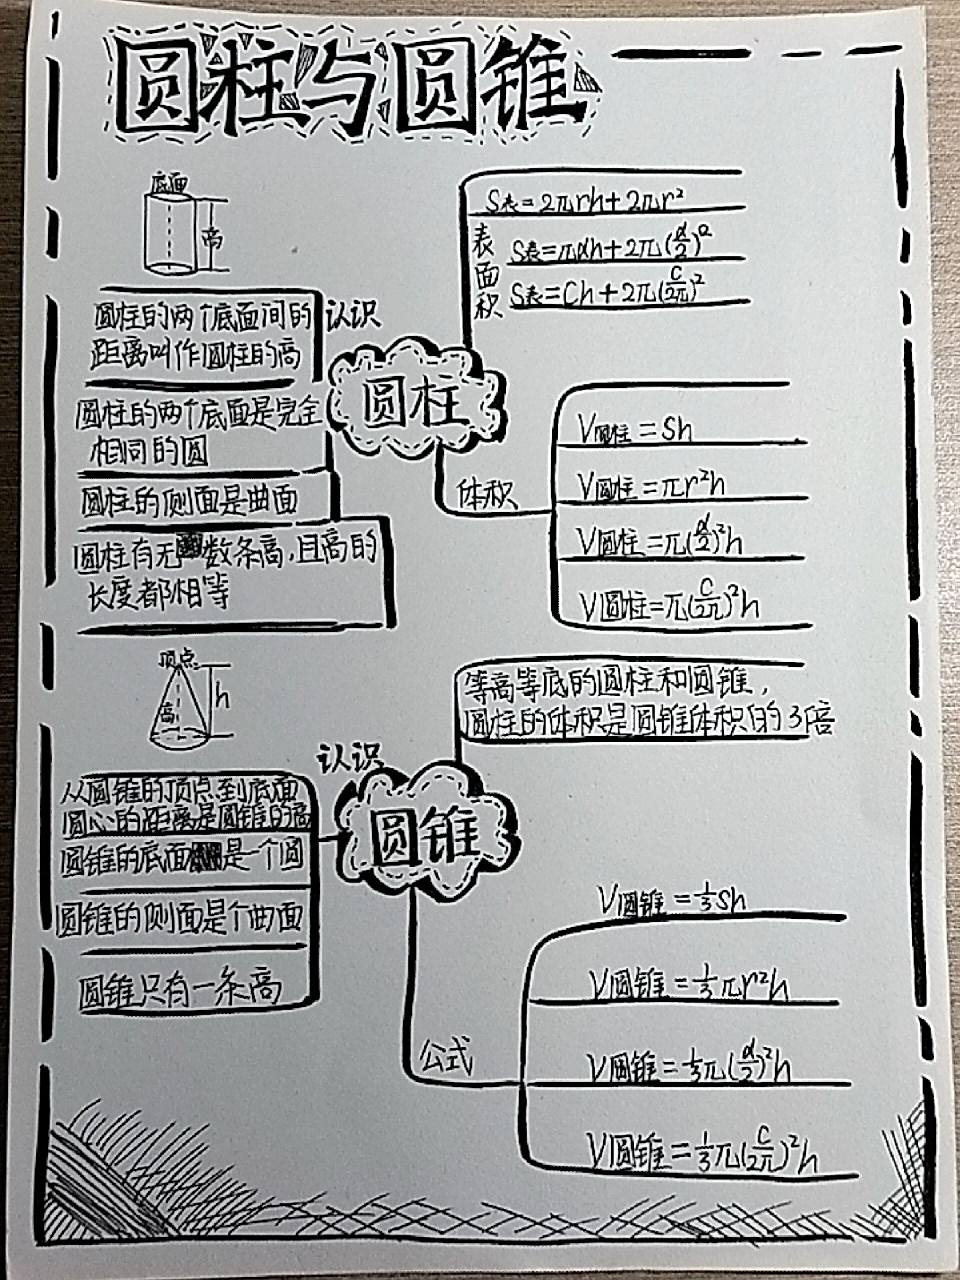 圆柱与圆锥
底面
高
圆柱的两个底面间的
距离叫作圆柱的高
圆柱的两个底面是完全
相同的圆
圆柱的侧面是曲面
圆柱有无数条高,且高的
长度都相等
认识
圆柱
表面积
S表=2πrh+2πr²
S表=πdh+2π(d/2)²
S表=Ch+2π(C/2π)²
体积
V圆柱=Sh
V圆柱=πr²h
V圆柱=π(d/2)²h
V圆柱=π(C/2π)²h
顶点
高
h
认识
从圆锥的顶点到底面
圆心的距离是圆锥的高
圆锥的底面是一个圆
圆锥的侧面是个曲面
圆锥只有一条高
圆锥
等高等底的圆柱和圆锥,
圆柱的体积是圆锥体积的3倍
公式
V圆锥=⅓Sh
V圆锥=⅓πr²h
V圆锥=⅓π(d/2)²h
V圆锥=⅓π(C/2π)²h